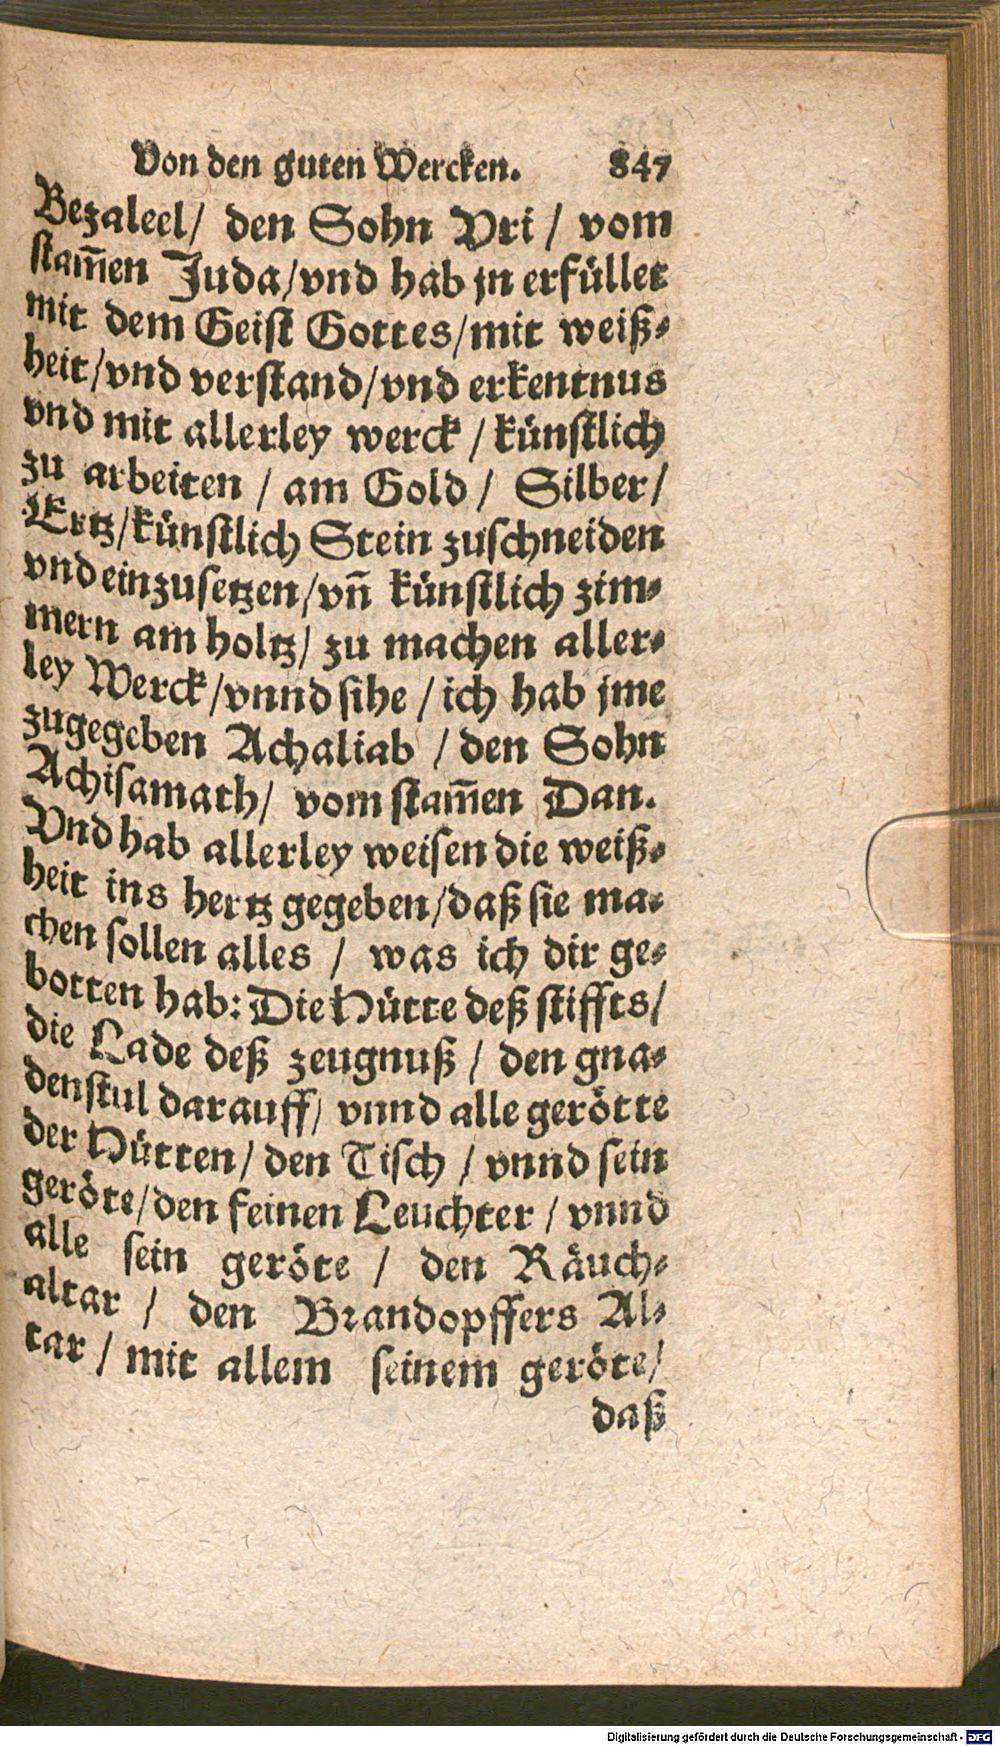 Von den guten Wercken. 847
Bezaleel/ den Sohn Vri / vom
stam̄en Juda/vnd hab jn erfüllet
mit dem Geist Gottes/mit weiß⸗
heit/vnd verstand/vnd erkentnus
vnd mit allerley werck / künstlich
zu arbeiten / am Gold / Silber/
Ertz/künstlich Stein zuschneiden
vnd einzusetzen/vn̄ künstlich zim⸗
mern am holtz/ zu machen aller⸗
ley Werck/vnnd sihe / ich hab jme
zugegeben Achaliab / den Sohn
Achisamath/ vom stam̄en Dan.
Vnd hab allerley weisen die weiß⸗
heit ins hertz gegeben/daß sie ma⸗
chen sollen alles / was ich dir ge⸗
botten hab: Die Hütte deß stiffts/
die Lade deß zeugnuß / den gna⸗
denstul darauff/ vnnd alle gerötte
der Hütten/ den Tisch / vnnd sein
geröte/den feinen Leuchter / vnnd
alle sein geröte / den Räuch⸗
altar / den Brandopffers Al⸗
tar / mit allem seinem geröte/
daß
Digitalisierung gefördert durch die Deutsche Forschungsgemeinschaft - DFG